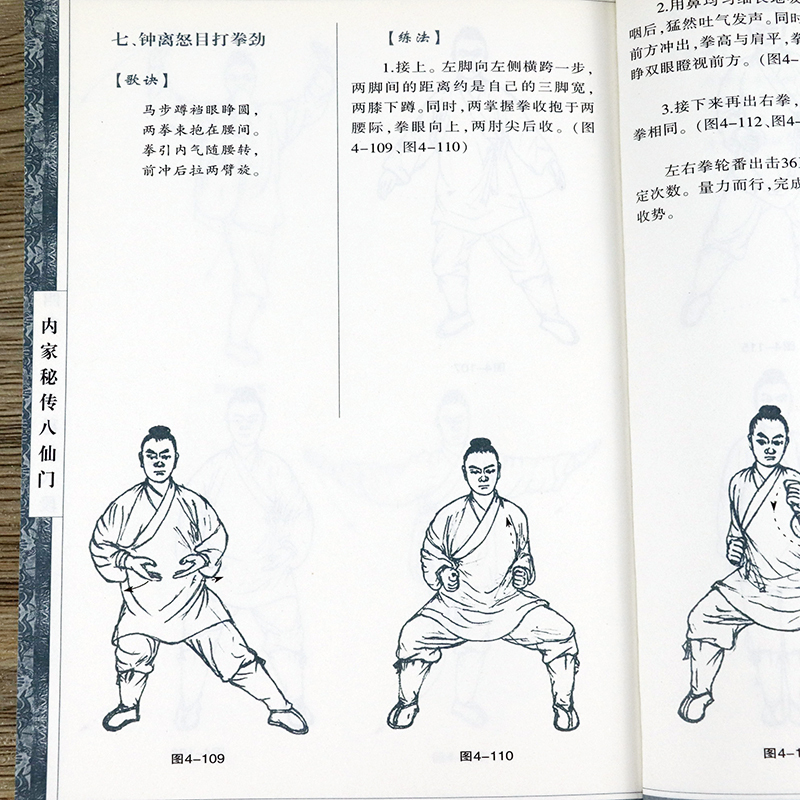 七、钟离怒目打拳劲
【歌诀】
马步蹲裆眼睁圆，
两拳束抱在腰间。
拳引内气随腰转，
前冲后拉两臂旋。
【练法】
1.接上。左脚向左侧横跨一步，
两脚间的距离约是自己的三脚宽，
两膝下蹲。同时，两掌握拳收抱于两
腰际，拳眼向上，两肘尖后收。（图
4-109、图4-110）
内家秘传八仙门
图4-109
图4-110
2.用鼻均匀细长地
咽后，猛然吐气发声。同时
前方冲出，拳高与肩平，
睁双眼瞪视前方。（图4-
3.接下来再出右拳，
拳相同。（图4-112、图4-
左右拳轮番出击36
定次数。量力而行，完成
收势。
图4-1